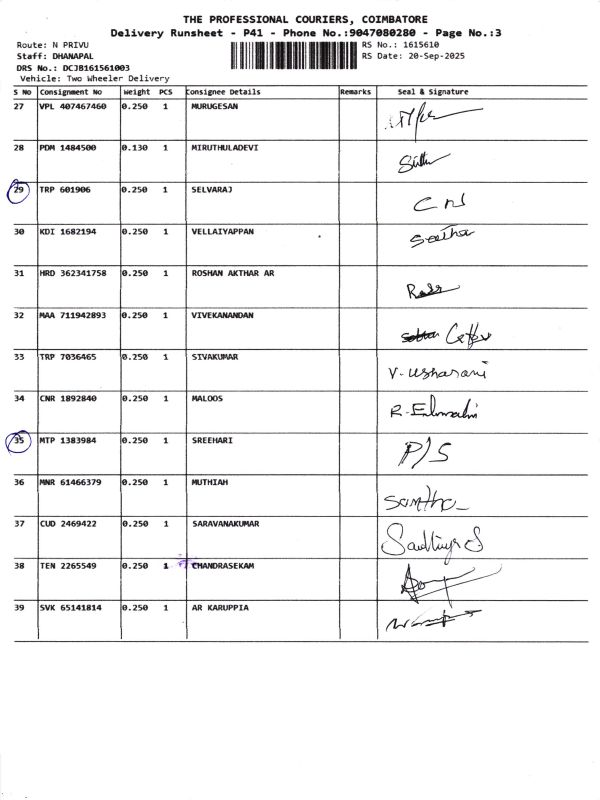 THE PROFESSIONAL COURIERS, COIMBATORE
Delivery Runsheet - P41 - Phone No.:9047080280 - Page No.:3
Route: N PRIVU
RS No.: 1615610
Staff: DHANAPAL
RS Date: 20-Sep-2025
DRS No.: DCJB161561003
Vehicle: Two Wheeler Delivery
S No Consignment No Weight PCS Consignee Details Remarks Seal & Signature
27 VPL 407467460 0.250 1 MURUGESAN
28 PDM 1484500 0.130 1 MIRUTHULADEVI
29 TRP 601906 0.250 1 SELVARAJ
30 KDI 1682194 0.250 1 VELLAIYAPPAN
31 HRD 362341758 0.250 1 ROSHAN AKTHAR AR
32 MAA 711942893 0.250 1 VIVEKANANDAN
33 TRP 7036465 0.250 1 SIVAKUMAR V. Usharani
34 CNR 1892840 0.250 1 MALOOS
35 MTP 1383984 0.250 1 SREEHARI P/S
36 MNR 61466379 0.250 1 MUTHIAH Santha
37 CUD 2469422 0.250 1 SARAVANAKUMAR
38 TEN 2265549 0.250 1 CHANDRASEKAM
39 SVK 65141814 0.250 1 AR KARUPPIA